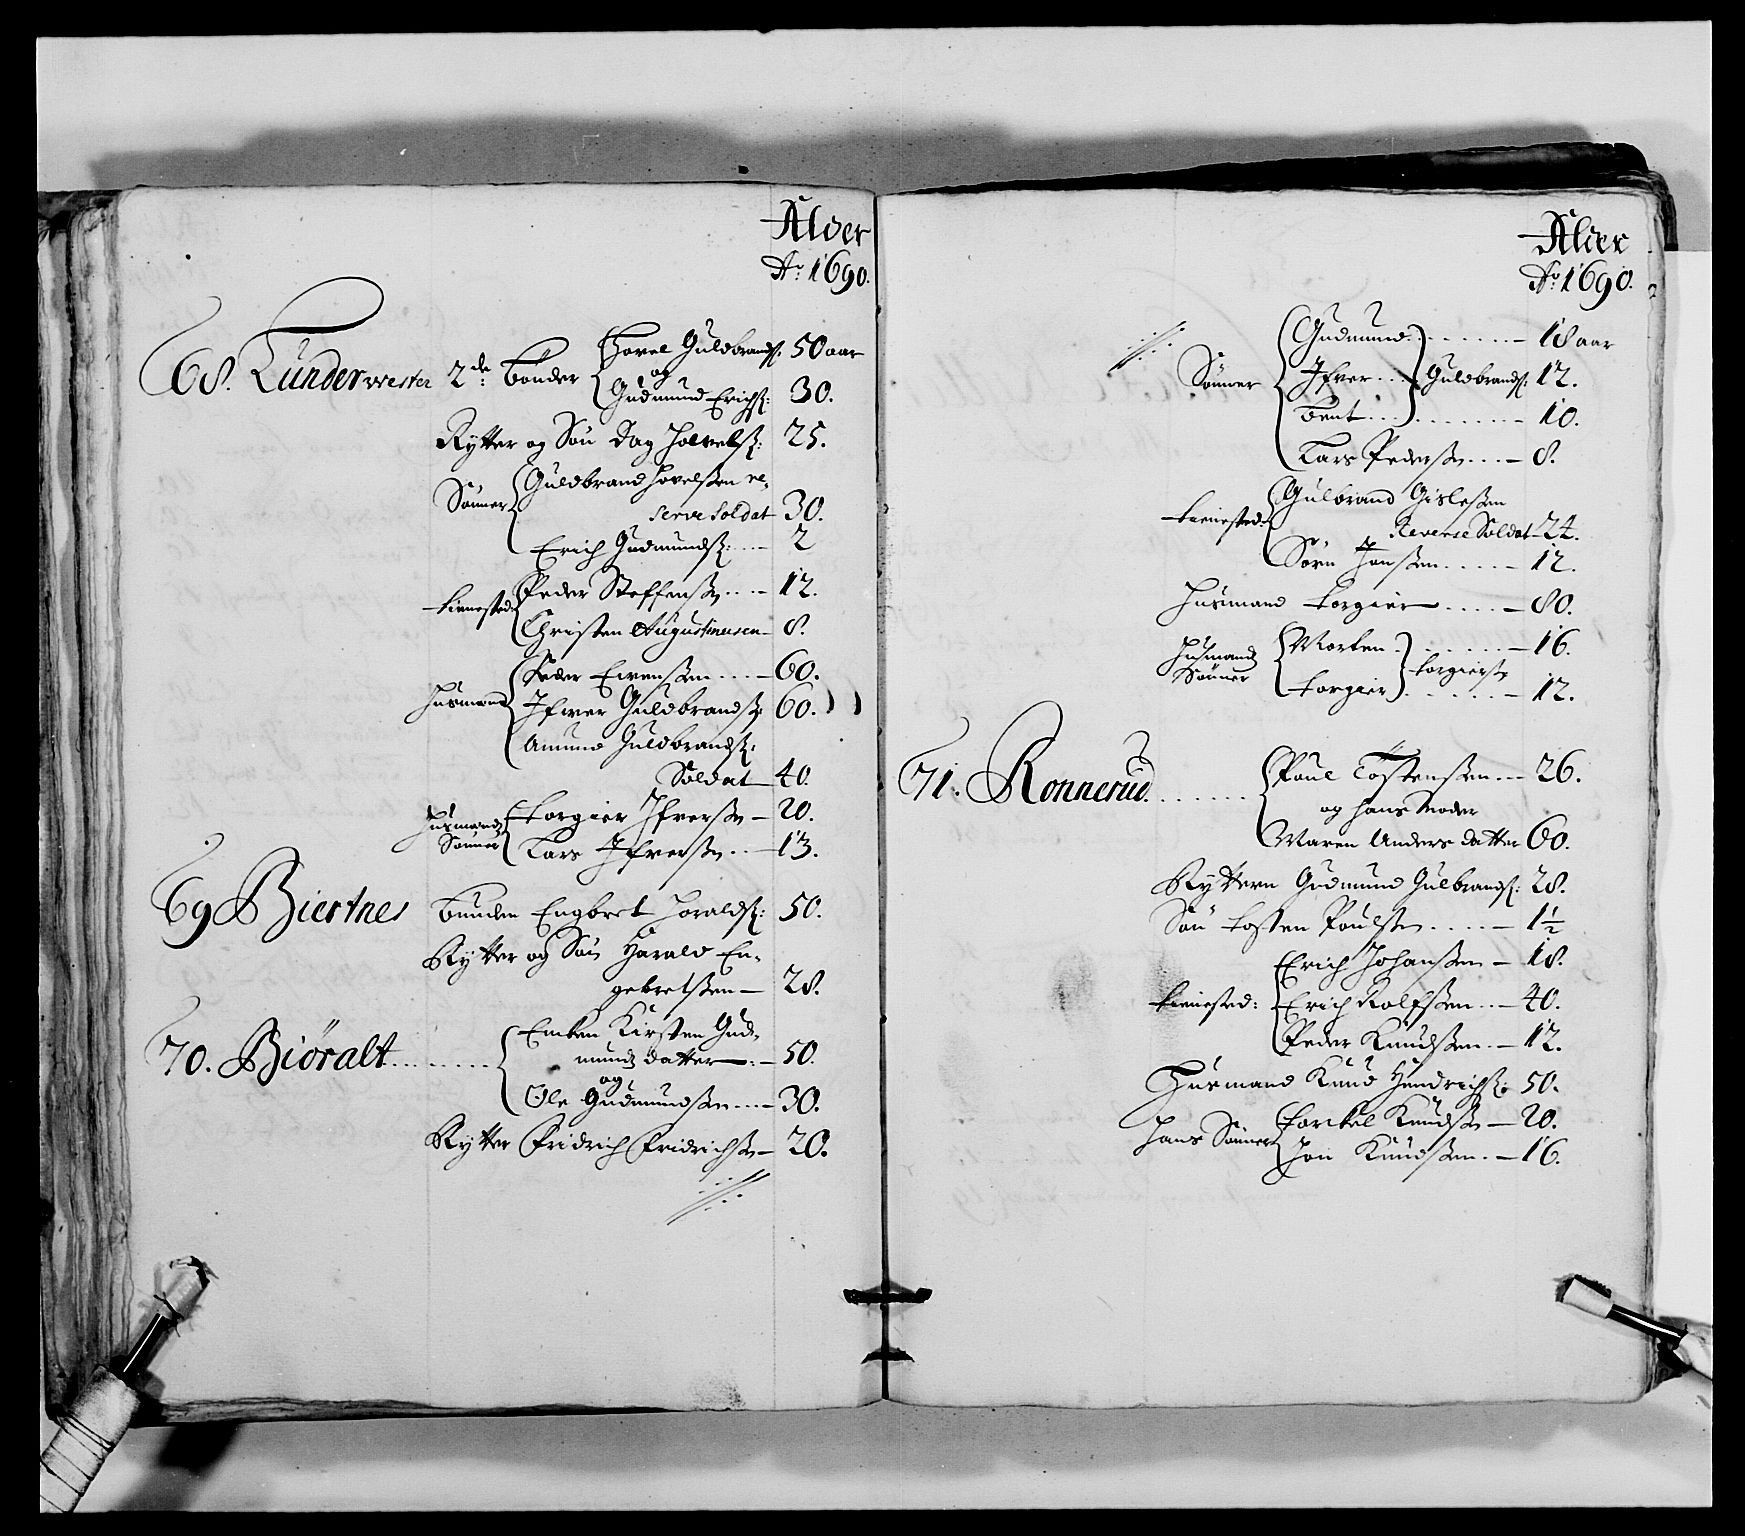 Alder
Ao 1690.
68. Lunder wester 2de: Bønder Hovel Guldbrands: 50 aar
og
Gudmund Erichs: 30.
Rytter og Søn Dag Holvels: 25.
Sønner Guldbrand Hovelsen re-
serve Soldat 30.
Erich Gudmunds: 2
tienisted: Peder Steffensen 12.
Christen Augustinusen 8.
Husmænd Peder Evensen 60.
Ifver Guldbrands: 60.
Amund Guldbrands:
Soldat 40.
Husmands Sønner Torgier Ifversen 20.
Lars Ifversen 13.
69 Biertnes Bunden Engbret Haralds: 50.
Rytter og Søn Harald En-
gebretsen 28.
70. Biöralt Encken Kirsten Gud-
munds datter 50.
og
Ole Gudmundsen 30.
Rytter Fridrich Fridrichsen 20.
Alder
Ao 1690.
Sønner Gudmund 18 aar
Ifver Guldbrands: 12.
Bent 10.
Lars Pedersen 8.
tienisted: Gulbrand Gislesen
Reverse Soldat 24.
Sørn Jonsen 12.
Husmand Torgier 80.
Husmands Sønner Morten 16.
Torgiersen
Torgier 12.
71. Ronnerud Poul Tostensen 26.
og hans Moder
Maren Anders datter 60.
Ryttern Gudmund Gulbrands: 28.
Søn Tosten Poulsen 1½
tienisted: Erich Johansen 18.
Erich Rolfsen 40.
Peder Knudsen 12.
Husmand Knud Hendrichs: 50.
hans Sønner Torckel Knudsen 20.
Jon Knudsen 16.